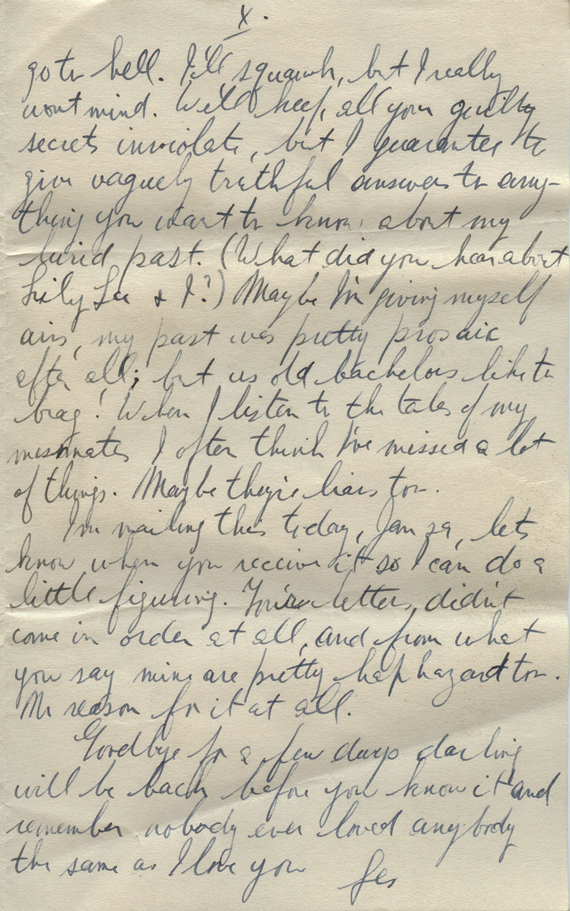 X.
go to hell. I'll squawk, but I really
wont mind. We'll keep all your guilty
secrets inviolate, but I guarantee to
give vaguely truthful answers to any-
thing you want to know about my
lurid past. (What did you hear about
Lily Lee & I?) Maybe I'm giving myself
airs, my past was pretty prosaic
after all; but us old bachelors like to
brag! When I listen to the tales of my
messmates I often think I've missed a lot
of things. Maybe they're liars too.
I'm mailing this today, Jan 29, lets
know when you receive it so I can do a
little figuring. Your letter, didn't
come in order at all, and from what
you say mine are pretty haphazard too.
No reason for it at all.
Goodbye for a few days darling
will be back before you know it and
remember nobody ever loved anybody
the same as I love you
Les